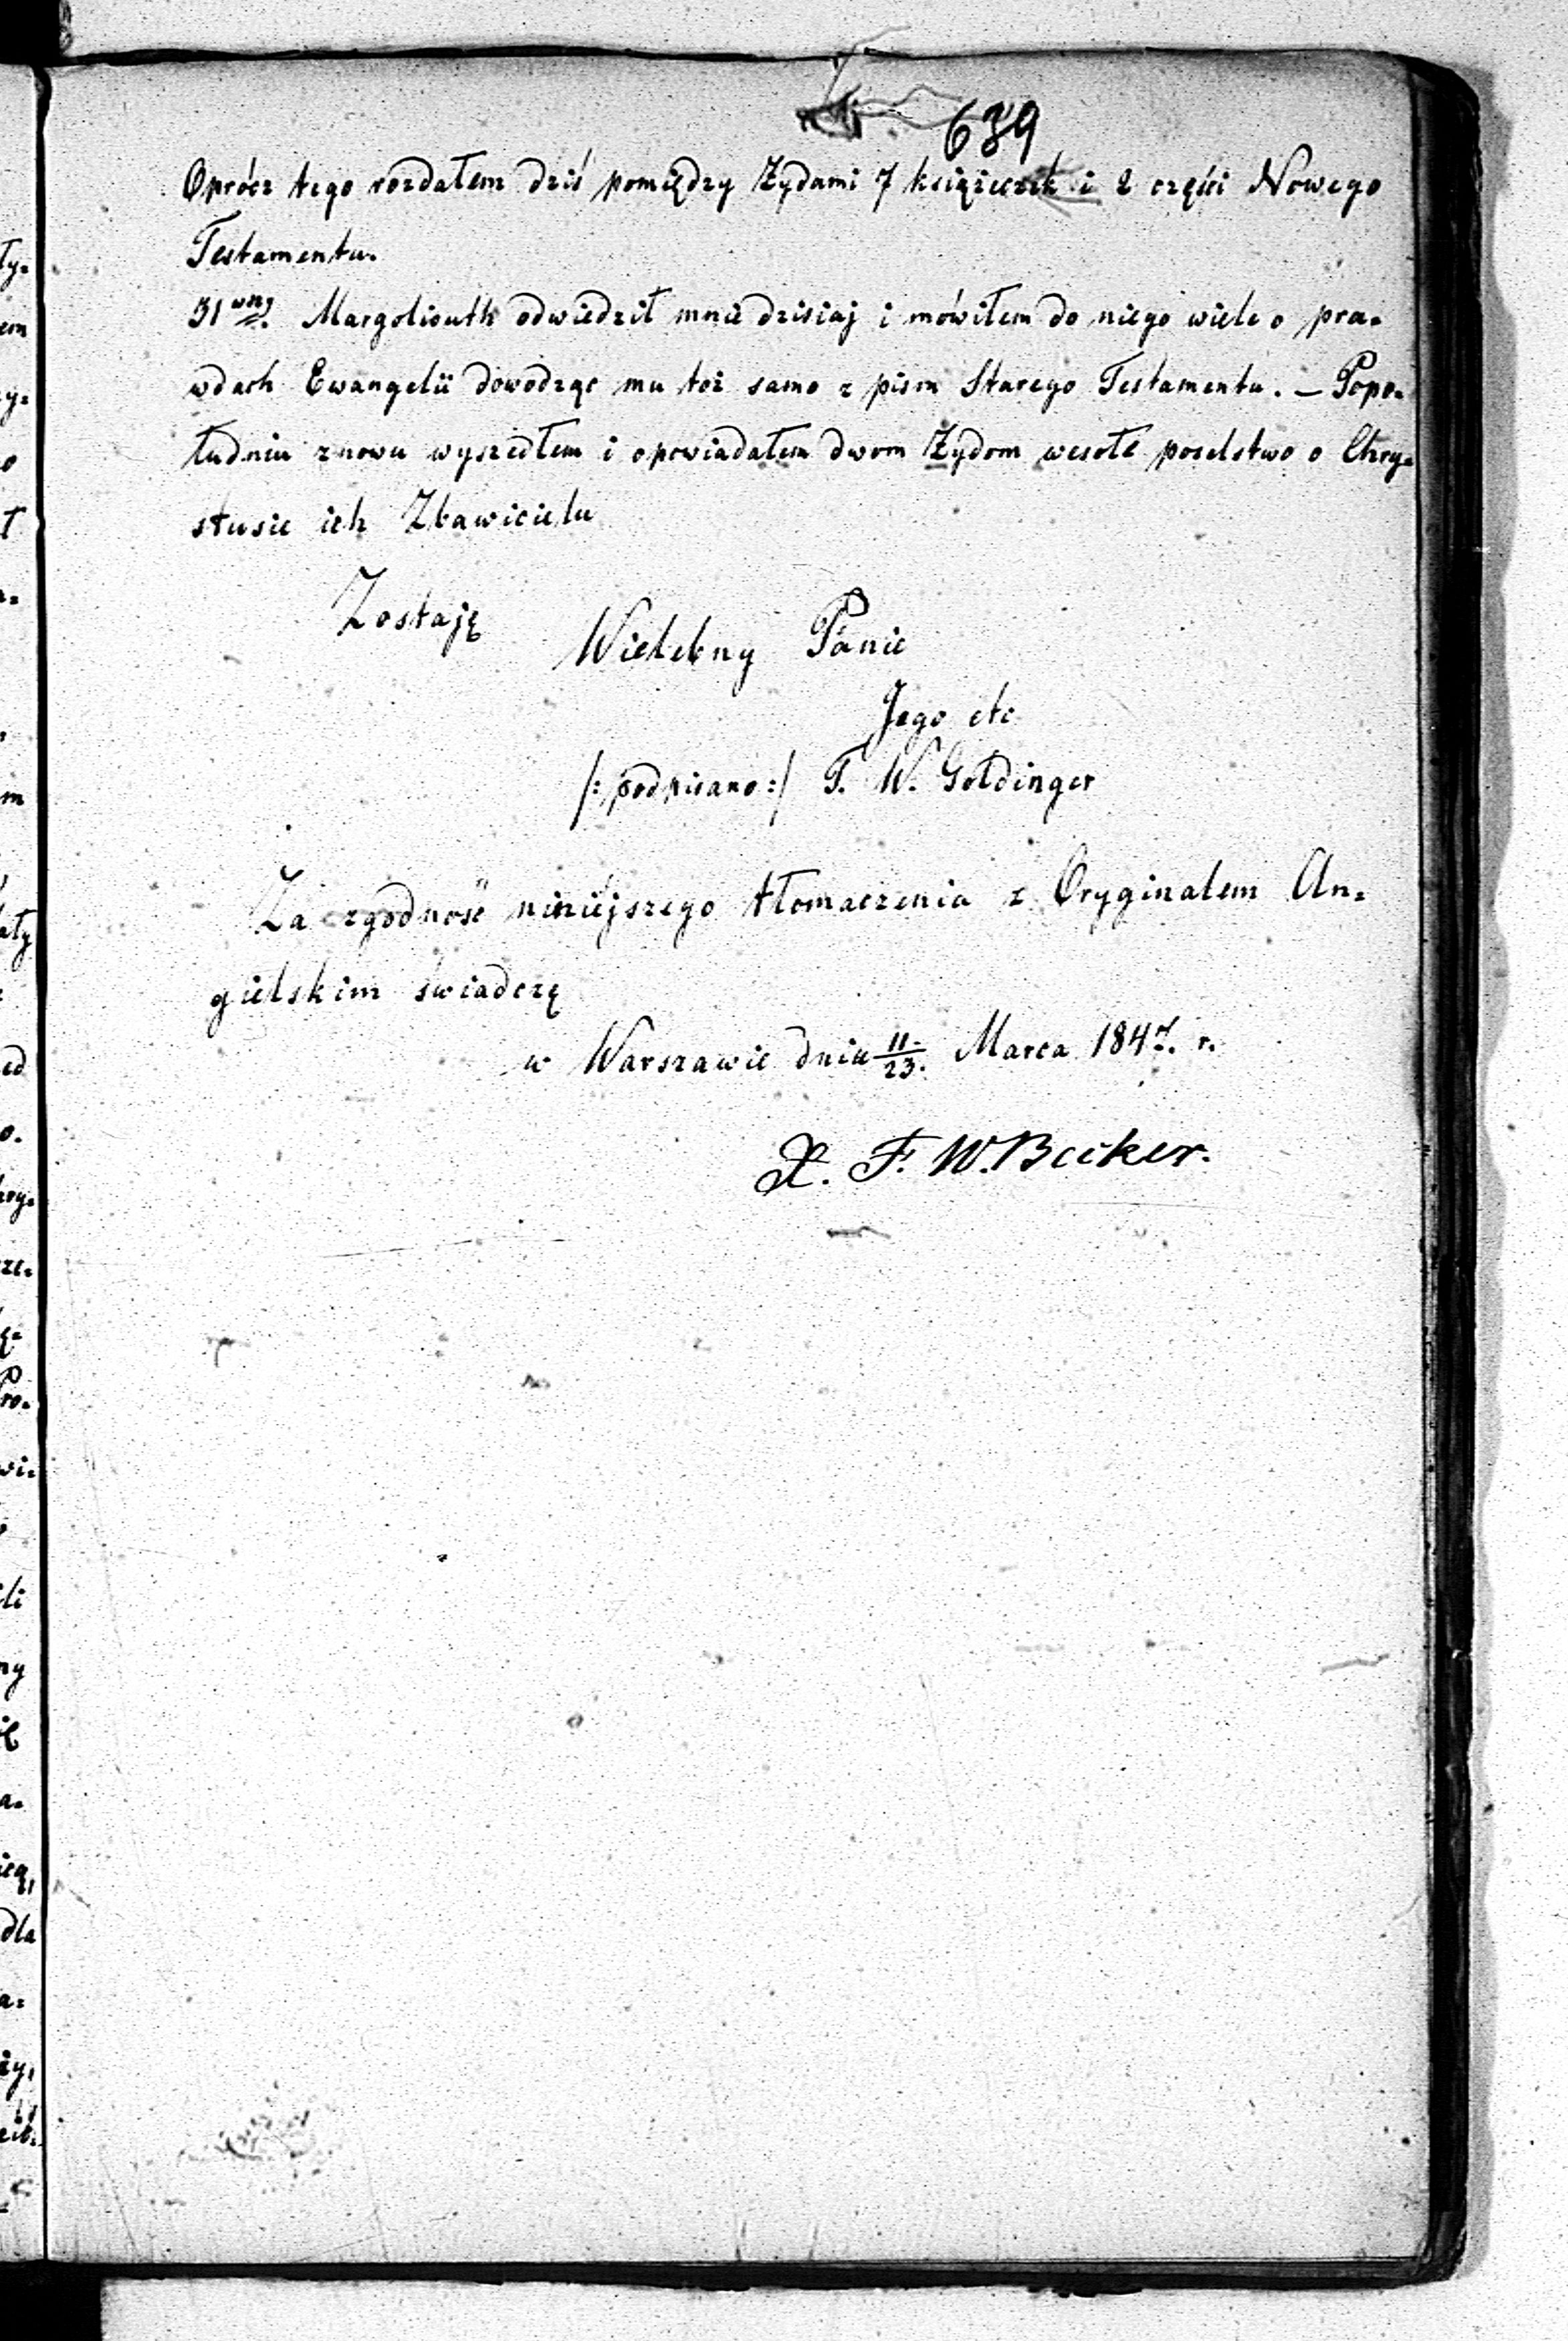 639
Oprócz tego rozdałem dziś pomiędzy Żydami 7 książeczek i 2 części Nowego
Testamentu.
31 wsz. Margoliouth odwiedził mnie dzisiaj i mówiłem do niego wiele o pra=
wdach Ewangelii dowodząc mu toż samo z pism Starego Testamentu. — Popo=
łudniu znowu wyszedłem i opowiadałem dwom Żydom wesołe poselstwo o Chry=
stusie ich Zbawicielu
Zostaję
Wielebny Panie
Jego etc
/: podpisano :/ T. W. Goldinger
Za zgodność niniejszego tłomaczenia z Oryginałem An=
gielskim świadczę
w Warszawie dnia 11/23. Marca 1847. r.
X. F. W. Becker.
ty=
em
zy=
o
ł
m
aty
ed
o.
hry=
rze=
ro=
wi=
li
ny
a=
dla
a=